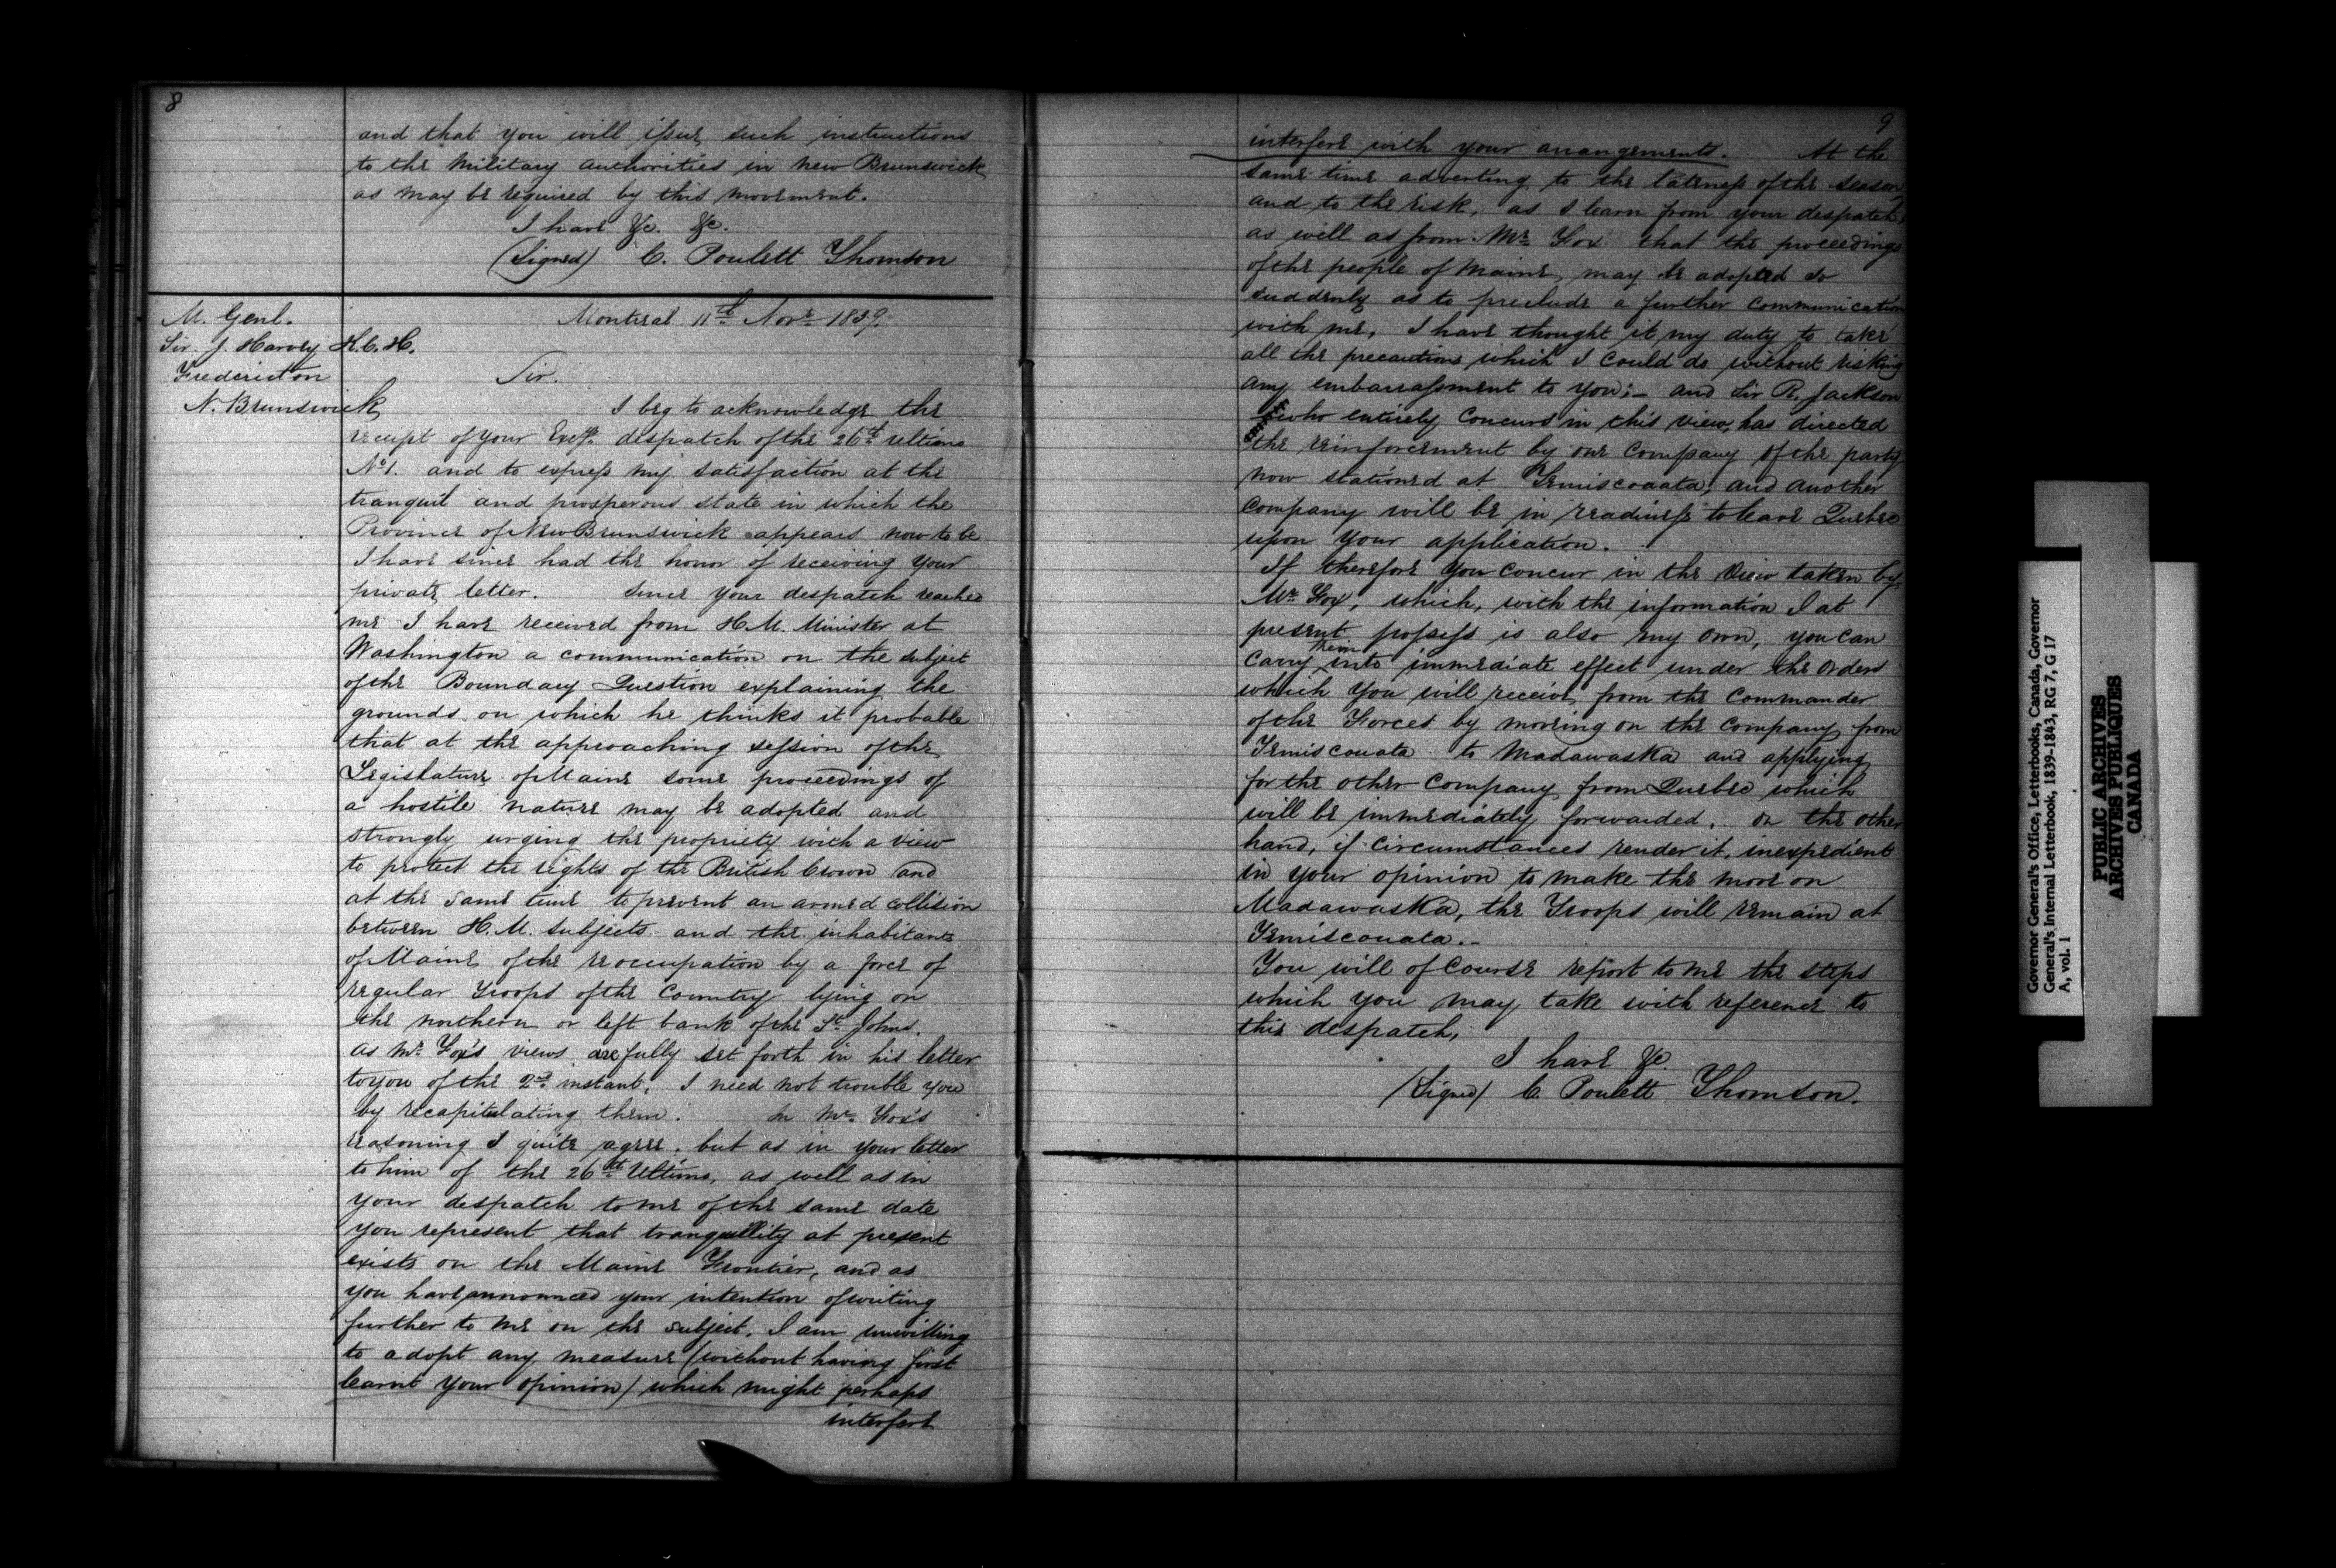 8
and that you will issue such instructions
to the Military authorities in New Brunswick
as may be required by this movement.
I have &c. &c.
(Signed) C. Poulett Thomson
M. Genl.
Sir J. Harvey K.C.H.
Fredericton
N. Brunswick
Montreal 11th Novr 1839.
Sir.
I beg to acknowledge the
receipt of your Excy's despatch of the 26th ultimo
No 1. and to express my satisfaction at the
tranquil and prosperous state in which the
Province of New Brunswick appears now to be
I have since had the honor of receiving your
private letter. Since your despatch reached
me I have received from H.M. Minister at
Washington a communication on the subject
of the Boundary Question explaining the
grounds on which he thinks it probable
that at the approaching session of the
Legislature of Maine some proceedings of
a hostile nature may be adopted and
strongly urging the propriety with a view
to protect the rights of the British Crown and
at the same time to prevent an armed collision
between H.M. subjects and the inhabitants
of Maine of the reoccupation by a force of
regular Troops of the Country lying on
the northern or left bank of the St. Johns.
As Mr. Fox's views are fully set forth in his letter
to you of the 2nd instant, I need not trouble you
by recapitulating them. In Mr. Fox's
reasoning I quite agree. but as in your letter
to him of the 26th Ultimo, as well as in
your despatch to me of the same date
you represent that tranquillity at present
exists on the Maine Frontier, and as
you have announced your intention of writing
further to me on the subject, I am unwilling
to adopt any measure (without having first
learnt your opinion) which might perhaps
interfere
9
interfere with your arrangements. At the
same time adverting to the lateness of the season
and to the risk, as I learn from your despatch,
as well as from Mr. Fox that the proceedings
of the people of Maine, may be adopted so
suddenly as to preclude a further communication
with me, I have thought it my duty to take
all the precautions which I could do without risking
any embarrassment to you;- and Sir R. Jackson
who entirely concurs in this view, has directed
the reinforcement by one Company of the party
now stationed at Temiscouata, and another
Company will be in readiness to leave Quebec
upon your application.
If therefore you concur in the view taken by
Mr. Fox, which, with the information I at
present possess is also my own, you can
carry them into immediate effect under the Orders
which you will receive from the Commander
of the Forces by moving on the Company from
Temiscouata to Madawaska and applying
for the other Company from Quebec which
will be immediately forwarded. On the other
hand, if circumstances render it, inexpedient
in your opinion to make the move on
Madawaska, the Troops will remain at
Temiscouata.-
You will of course report to me the steps
which you may take with reference to
this despatch,
I have &c
(Signed) C. Poulett Thomson.
Governor General's Office, Letterbooks, Canada, Governor
General's Internal Letterbook, 1839-1843, RG 7, G 17
A, vol. 1
PUBLIC ARCHIVES
ARCHIVES PUBLIQUES
CANADA